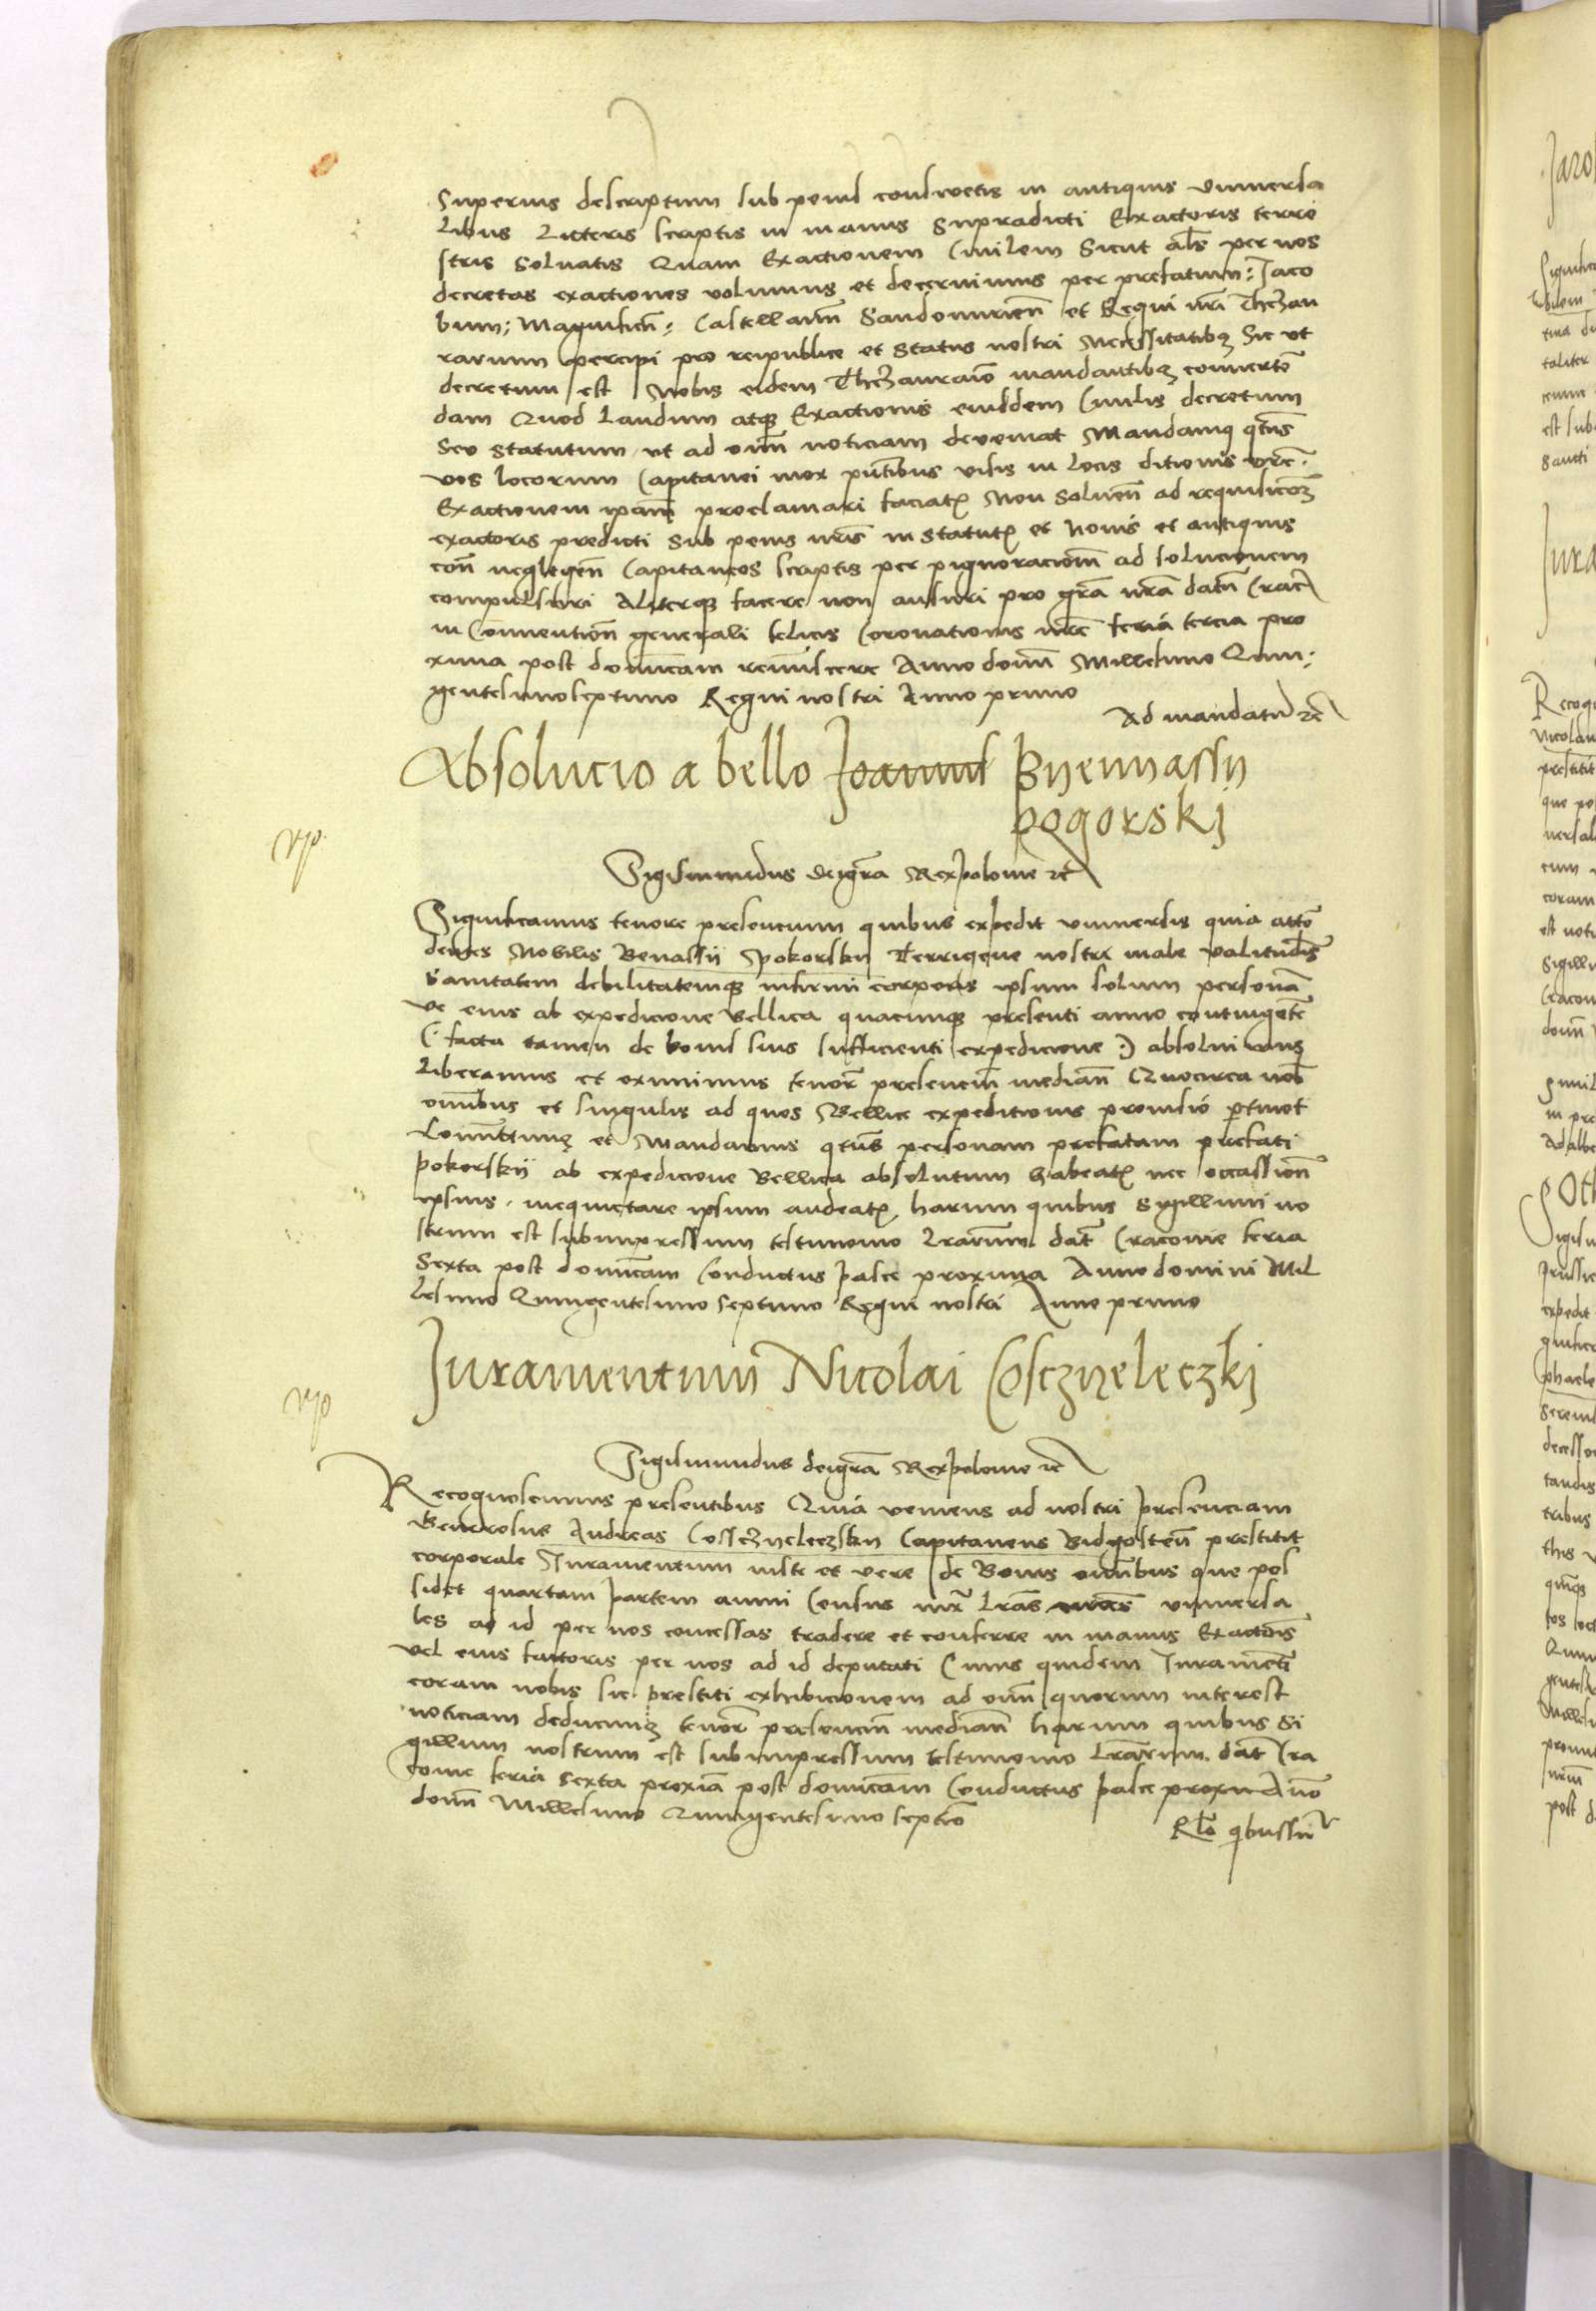 Superius descriptum sub penis consuetis in antiquis vniuersa
libus litteris scriptis in manus Supradicti Exactoris terre
stris Soluatis Quam Exactionem Ciuilem Sicut als per nos
decretas exactiones volumus et decernimus per prefatum: Jaco
bum: Magnificu: Castellanu Sandomirien et Regni nri Thezau
rarium percipi pro reipublice et Status nostri Necessitatibq Sic vt
decretum est Nobis eidem Thezaurario mandantibq conuerten
dam Quod laudum atq Exactionis eiusdem Ciuilis decretum
Seu Statutum vt ad omn noticiam deueniat Mandamq qtus
vos locorum Capitanei mox pntibus visis in locis ditionis vre
Exactionem ipam proclamari faciatis Non Soluen ad requisicoem
exactoris predicti Sub penis nris in Statutis et Nouis et antiquis
con neglegen Capitaneos scriptis per pignoracionem ad solucionem
compulsuri Aliterq facere non ausuri pro gra nra datu Crac
in Conuention generali felicis Coronationis nre feria tercia pro
xima post dominicam reminiscere Anno domi Millesimo Quin:
gentesimoseptimo Regni nostri Anno primo
Ad mandatu etc
Absolucio a bello Joannis Byennassii
pogorskj
Sigismundus deigra Rex polonie etc
Significamus tenore presencium quibus expedit vniuersis quia atten
dentes Nobilis Benassii Spokorskii Terrigene nostri male valitudis
Sanitatem debilitatemq infirmi corporis ipsum solum personam
ve eius ab expedicione Bellica quacunq presenti anno contingente
(: facta tamen de bonis suis sufficienti expedicione :) absoluimus
liberamus et eximimus tenore presencium median Quocirca nob
omibus et singulis ad quos Bellice expeditionis prouisio ptinet
Comittimq et Mandamus qtus personam prefatam prefati
pokorskii ab expedicione Bellica absolutum habeatis nec occassion
ipsius inequietare ipsum audeatis harum quibus Sigillum no
strum est subimpressum testimonio lrarum dat Cracouie feria
Sexta post dominicam Conductus pasce proxima Anno domini Mil
lesimo Quingentesimo Septimo Regni nostri Anno primo
Juramentum Nicolai Cosczyeleczkj
Sigismundus deigra Rex polonie etc
Recognoscimus presentibus Quia veniens ad nostri presenciam
Generosus Andreas Cossczyeleczskii Capitaneus Bidgostien prestitit
corporale Juramentum iuste et vere de Bonis omibus que pos
sidet quartam partem anni Census iux lras nras vniuersa
les ad id per nos concessas tradere et conferre in manus Exactoris
vel eius factoris per nos ad id deputati Cuius quidem Juramenti
coram nobis sic prestiti exhibicionem ad omn quorum interest
noticiam deducimq tenore presencium median harum quibus Si
gillum nostrum est subimpressum testimonio lrarum dat Cra
couie feria Sexta proxia post dominicam Conductus pasce proxim Ano
domi Millesimo Quingentesimo septio